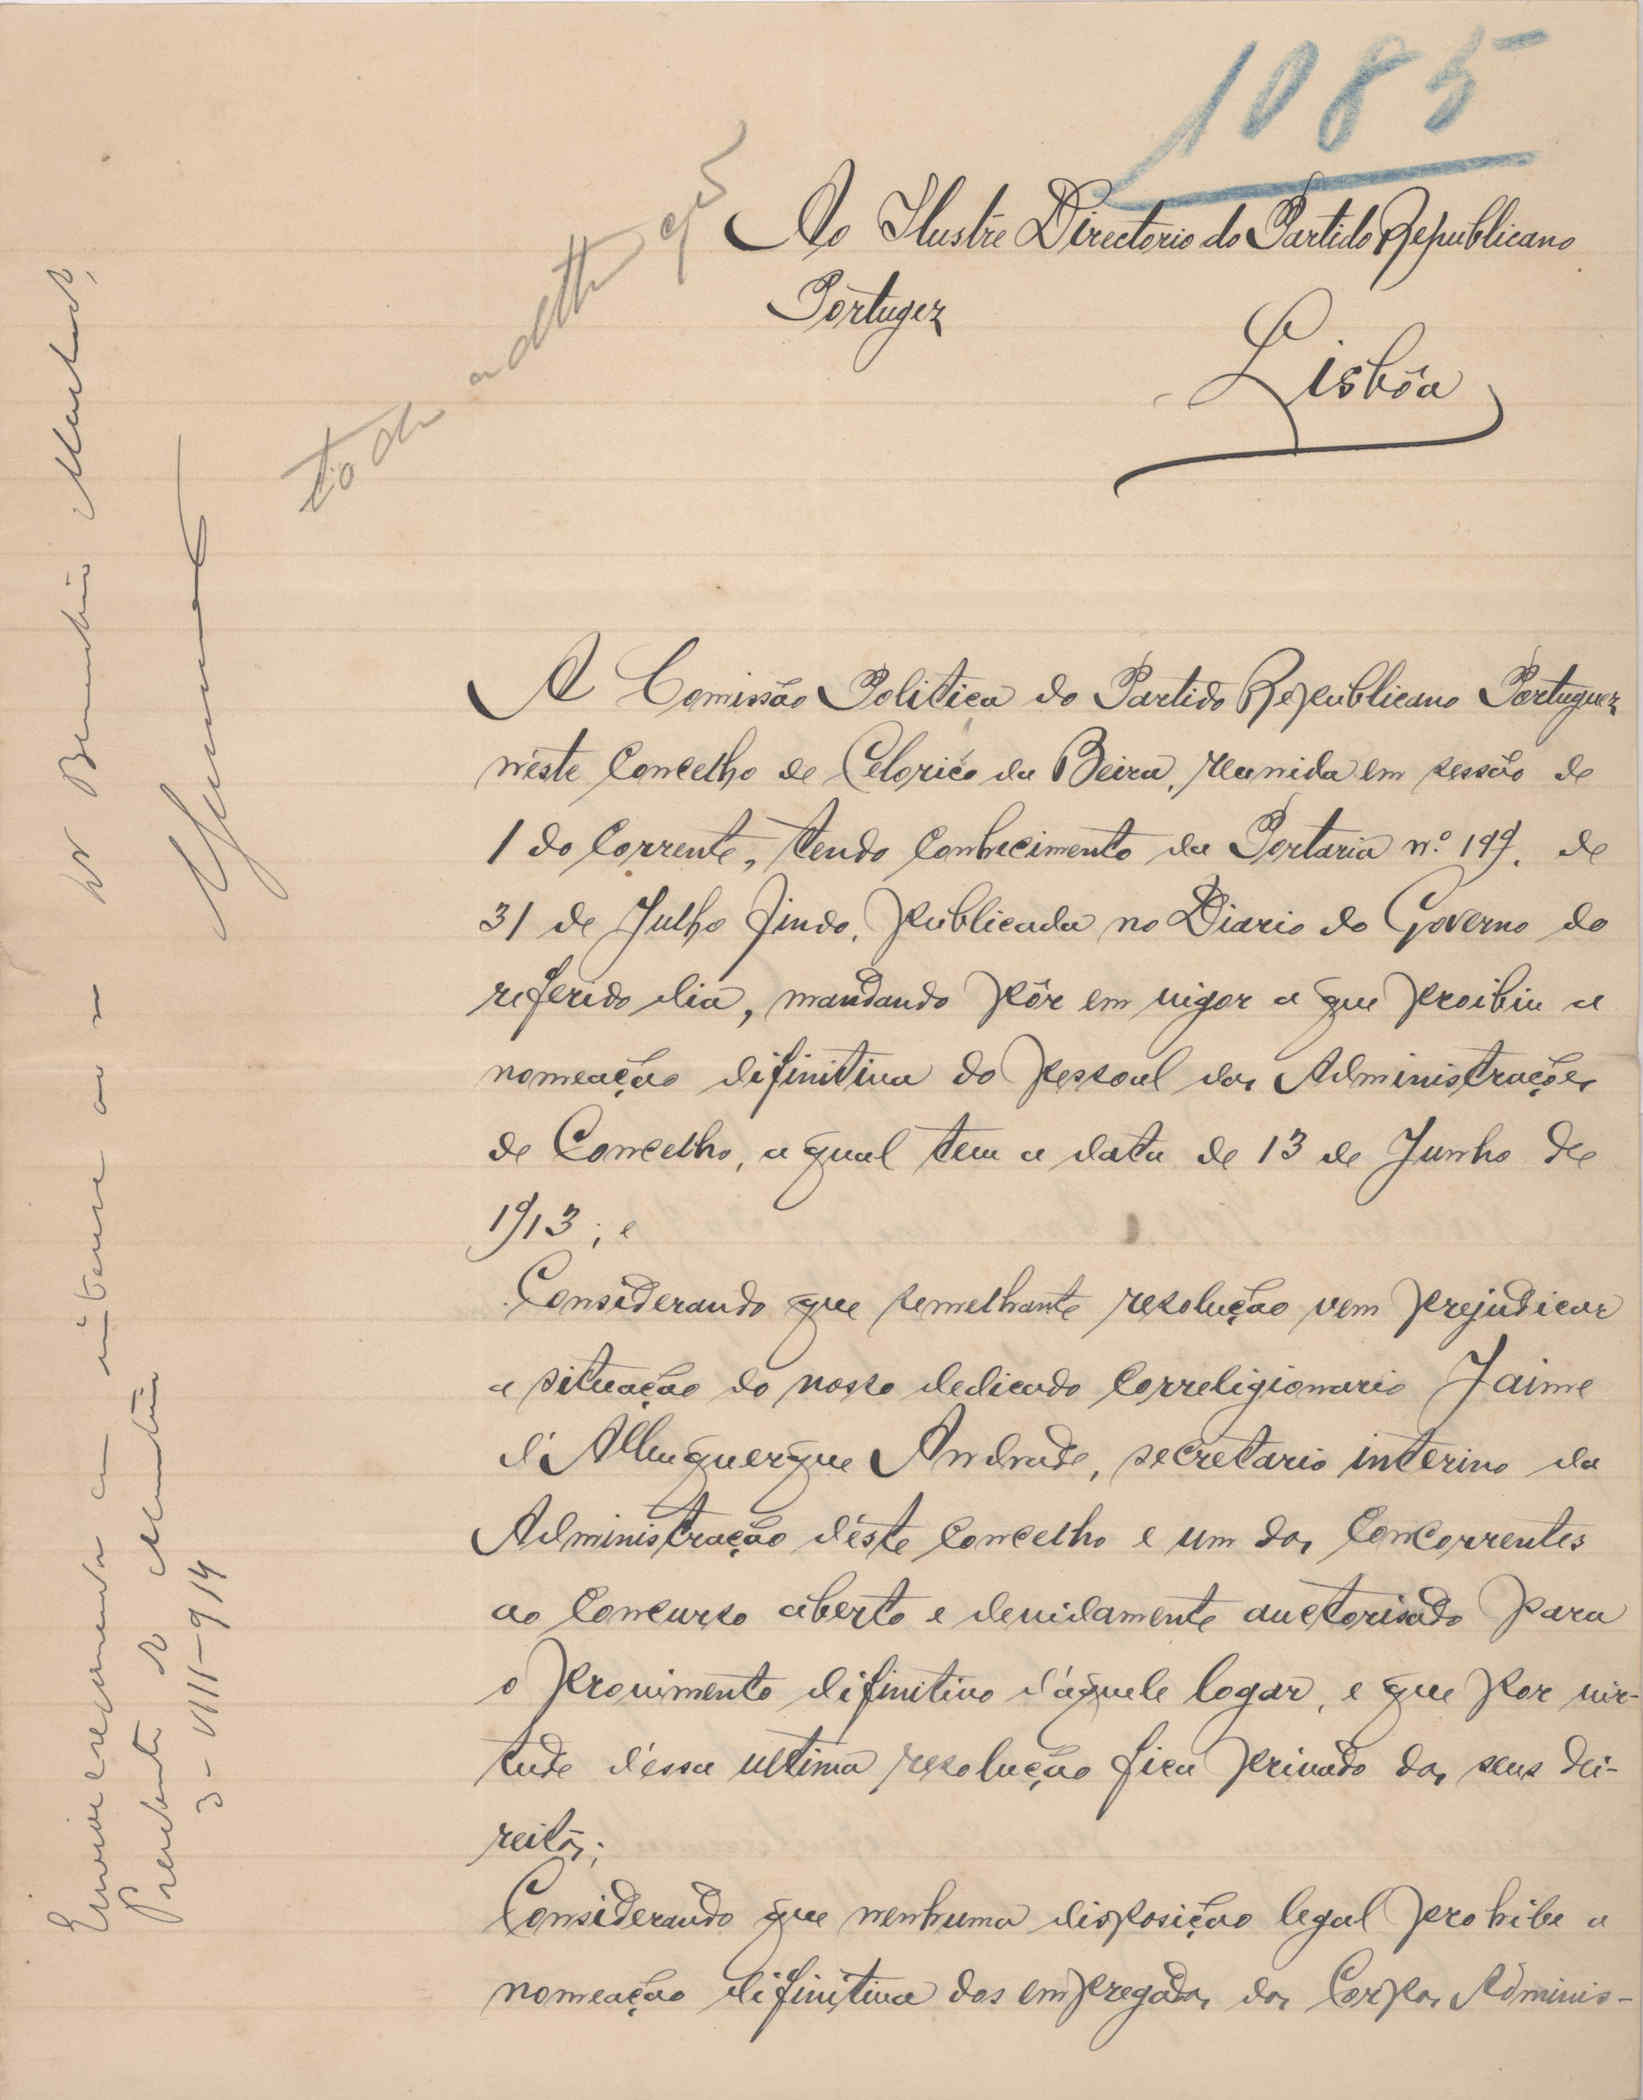 1085
Ao Ilustre Directorio do Partido Republicano
Portugez
Lisbôa
A Comissão Politica do Partido Republicano Portuguez
n'êste Concelho de Celorico da Beira, reunida em sessão de
1 do corrente, tendo conhecimento da Portaria n.º 199, de
31 de Julho findo, publicada no Diario do Governo do
referido dia, mandando pôr em vigor a que proibiu a
nomeação difinitiva do pessoal das Administrações
de Concelho, a qual tem a data de 13 de Junho de
1913; e
Considerando que semelhante resolução vem prejudicar
a situação do nosso dedicado correligionario Jaime
d'Albuquerque Andrade, secretario interino da
Administração d'êste concelho e um dos concorrentes
ao concurso aberto e devidamente auctorisado para
o provimento difinitivo d'aquele logar, e que por vir-
tude d'essa ultima resolução fica privado dos seus dei-
reitos;
Considerando que nenhuma disposição legal prohibe a
nomeação difinitiva dos empregados dos Corpos Adminis-
Enviar e recomendar com interesse ao
Sr Bernardino Machado,
Presidente do Ministerio
3-VIII-914